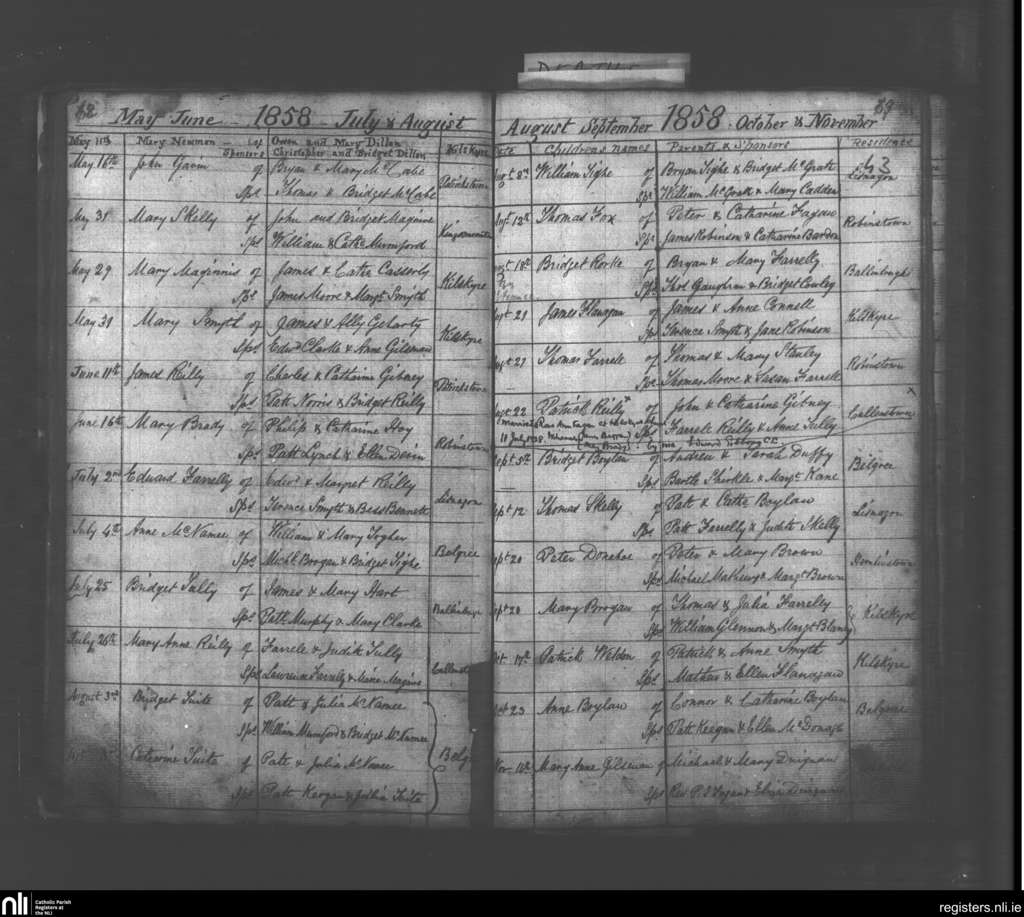 DEATHS
62
May June 1858 July & August
May 11th Mary Newman of Owen and Mary Dillon
Sponsors Christopher and Bridget Dillon Kilskyre
May 16th John Gavin of Bryan & Mary McCabe
Sps Thomas & Bridget McCabe Patrickstown
May 31 Mary Skelly of John and Bridget Maguire
Sps William & Cathe Mumford
May 29 Mary Maginnis of James & Cathe Casserly
Sps James Moore & Margt Smyth Kilskyre
May 31 Mary Smyth of James & Ally Geharty
Sps Edwd Clarke & Anne Gilsenan Kilskyre
June 11th James Reilly of Charles & Catharine Gibney
Sps Patt Norris & Bridget Reilly Patrickstown
June 16th Mary Brady of Philip & Catharine Hoy
Sps Patt Lynch & Ellen Devin Robinstown
July 2nd Edward Farrelly of Edwd & Margret Reilly
Sps Terence Smyth & Bess Bennett Lisnagon
July 4th Anne McNamee of William & Mary
Sps Michl Brogan & Bridget Tighe Balgree
July 25 Bridget Tully of James & Mary Hart
Sps Patt Murphy & Mary Clarke
July 26th Mary Anne Reilly of Farrele & Judith Tully
Sps Lawrence Farrelly & Anne Maguire
August 3rd Bridget Suite of Patt & Julia McNamee
Sps William Mumford & Bridget McNamee
Catherine Suite of Patt & Julia McNamee Belg
Sps Patt Keegan & Julia Suite
August September 1858 October & November
Date Childrens names Parents & Sponsors Residence
63
Augt 8th William Tighe of Bryan Tighe & Bridget McGrath
Sps William McGrath & Mary Cadden Lisnagon
Augt 12th Thomas Fox of Peter & Catharine Fagan
Sps James Robinson & Catharine Bardon Robinstown
Augt 18th Bridget Rorke of Bryan & Mary Farrelly
Sps Thos Gaughran & Bridget Cowley
Augt 21 James Flanagan of James & Anne Connell
Sps Terence Smyth & Jane Robinson Kilskyre
Augt 21 Thomas Farrele of Thomas & Mary Stanley
Sps Thomas Moore & Susan Farrele Robinstown
Augt 22 Patrick Reilly x of John & Catharine Gibney x
Married
Sps Farrele Reilly & Anne Tully Cullentown
11 July
by me Edward C.C.
Sept 5th Bridget Boylan of Andrew & Sarah Duffy
Sps Bartle Shirkle & Margt Kane Balgree
Sept 12 Thomas Skelly of Patt & Cathe Boylan
Sps Patt Farrelly & Judith Skelly Lisnagon
Sept 20 Peter Donahoe of Peter & Mary Brown
Sps Michael Mathews & Margt Brown
Sept 20 Mary Brogan of Thomas & Julia Farrelly
Sps William Glennon & Margt Blaney Kilskyre
Oct 17th Patrick Weldon of Patrick & Anne Smyth
Sps Mathew & Ellen Flanagan Kilskyre
Oct 23 Anne Boylan of Connor & Catharine Boylan
Sps Patt Keegan & Ellen McDonagh Balgree
Nov 14th Mary Anne Gilsenan of Michael & Mary Duignan
Sps Rev P. J. Fagan & Eliza Duignan
nli Catholic Parish Registers at the NLI
registers.nli.ie